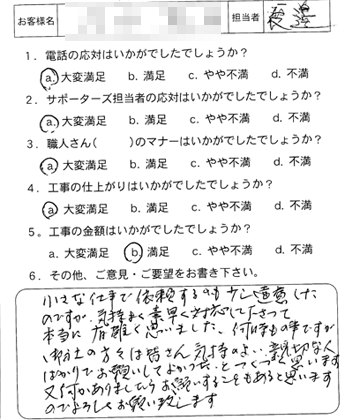 お客様名 担当者 長沼
1．電話の応対はいかがでしたでしょうか？
a. 大変満足 b. 満足 c. やや不満 d. 不満
2．サポーターズ担当者の応対はいかがでしたでしょうか？
a. 大変満足 b. 満足 c. やや不満 d. 不満
3．職人さん(　　　)のマナーはいかがでしたでしょうか？
a. 大変満足 b. 満足 c. やや不満 d. 不満
4．工事の仕上がりはいかがでしたでしょうか？
a. 大変満足 b. 満足 c. やや不満 d. 不満
5．工事の金額はいかがでしたでしょうか？
a. 大変満足 b. 満足 c. やや不満 d. 不満
6．その他、ご意見・ご要望をお書き下さい。
小さな仕事で依頼するのも少し遠慮した
のですが、気持よく素早く対応して下さって
本当に有難く思いました。何時もの事ですが
御社の方々は皆さん気持のよい親切な人
ばかりでお願いしてよかった、とつくづく思います
又何かありましたらお願いすることもあると思います
のでよろしくお願い致します